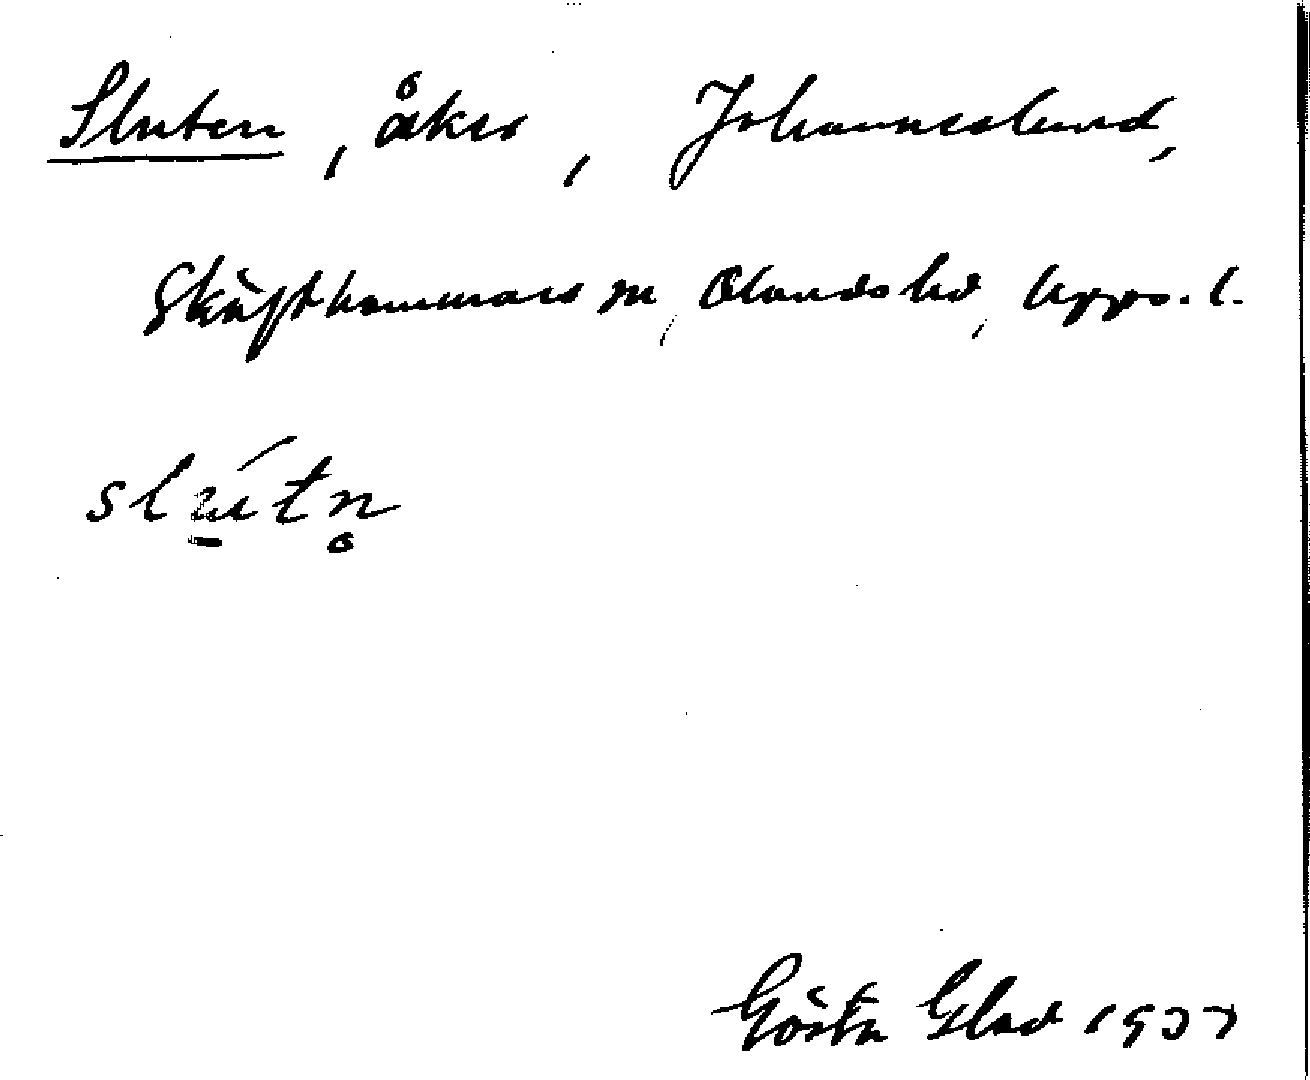 Sluten, åker, Johanneslund,
Skäfthammars sn, Olands hd, Upps. l.
slú̲tn̥
Gösta Glad 1937